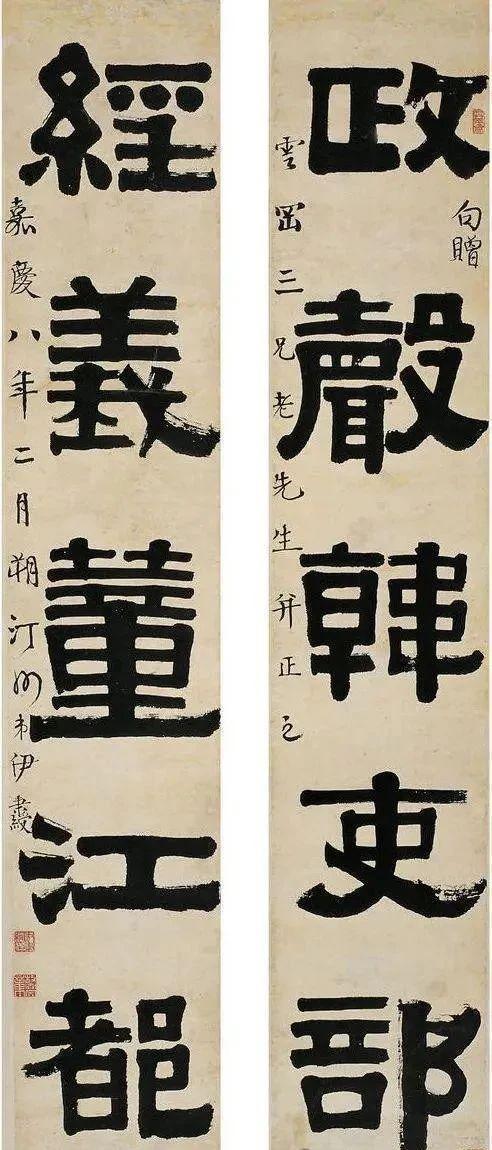 句贈
政聲韓吏部
雲岡三兄老先生并正之
經義董江都
嘉慶八年二月朔汀州弟伊秉綬